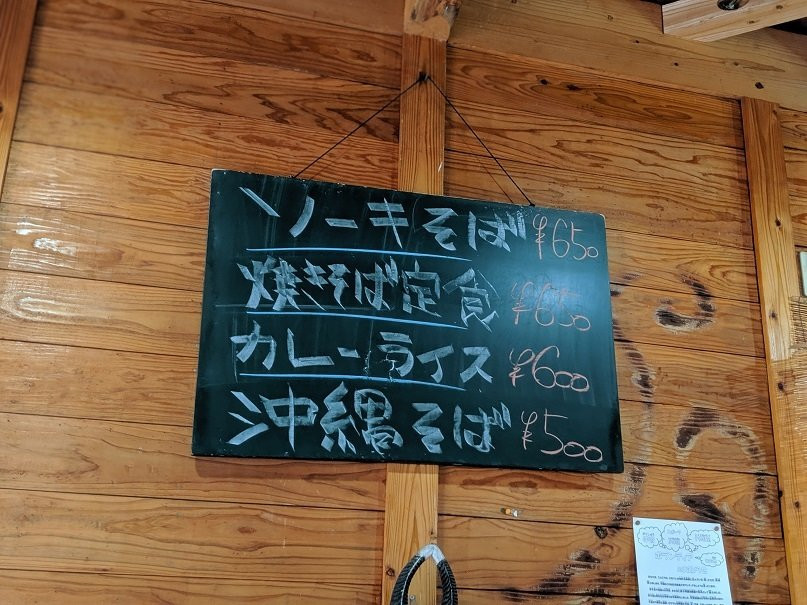 ソーキそば ¥650
焼きそば定食 ¥650
カレーライス ¥600
沖縄そば ¥500